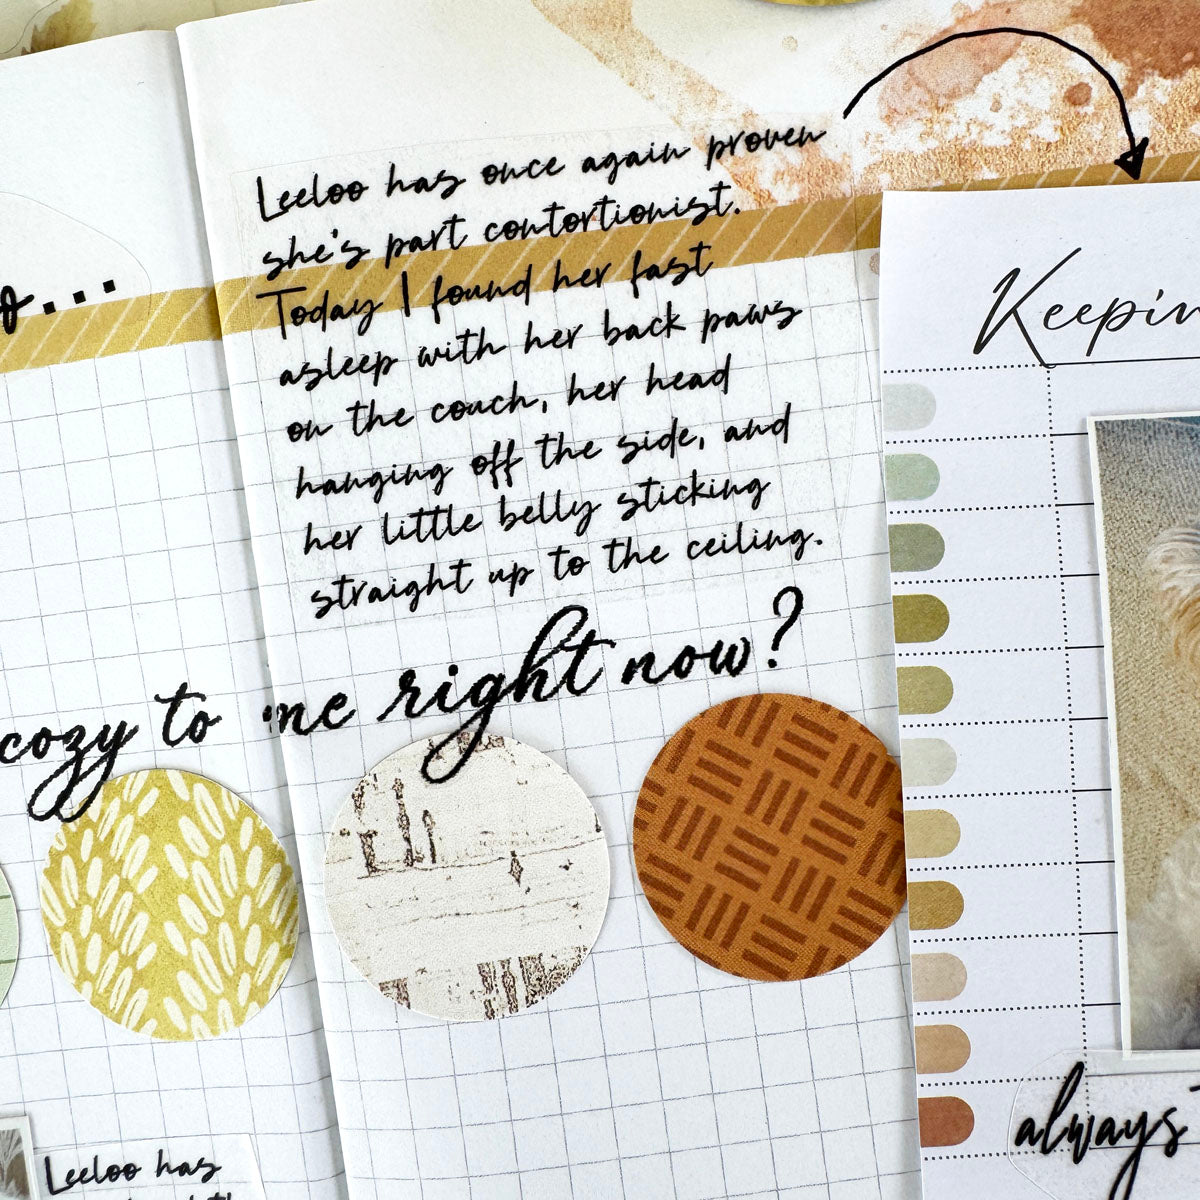 Leeloo has once again proven
she's part contortionist.
Today I found her fast
asleep with her back paws
on the couch, her head
hanging off the side, and
her little belly sticking
straight up to the ceiling.
cozy to me right now?
Keepin
always
Leeloo has